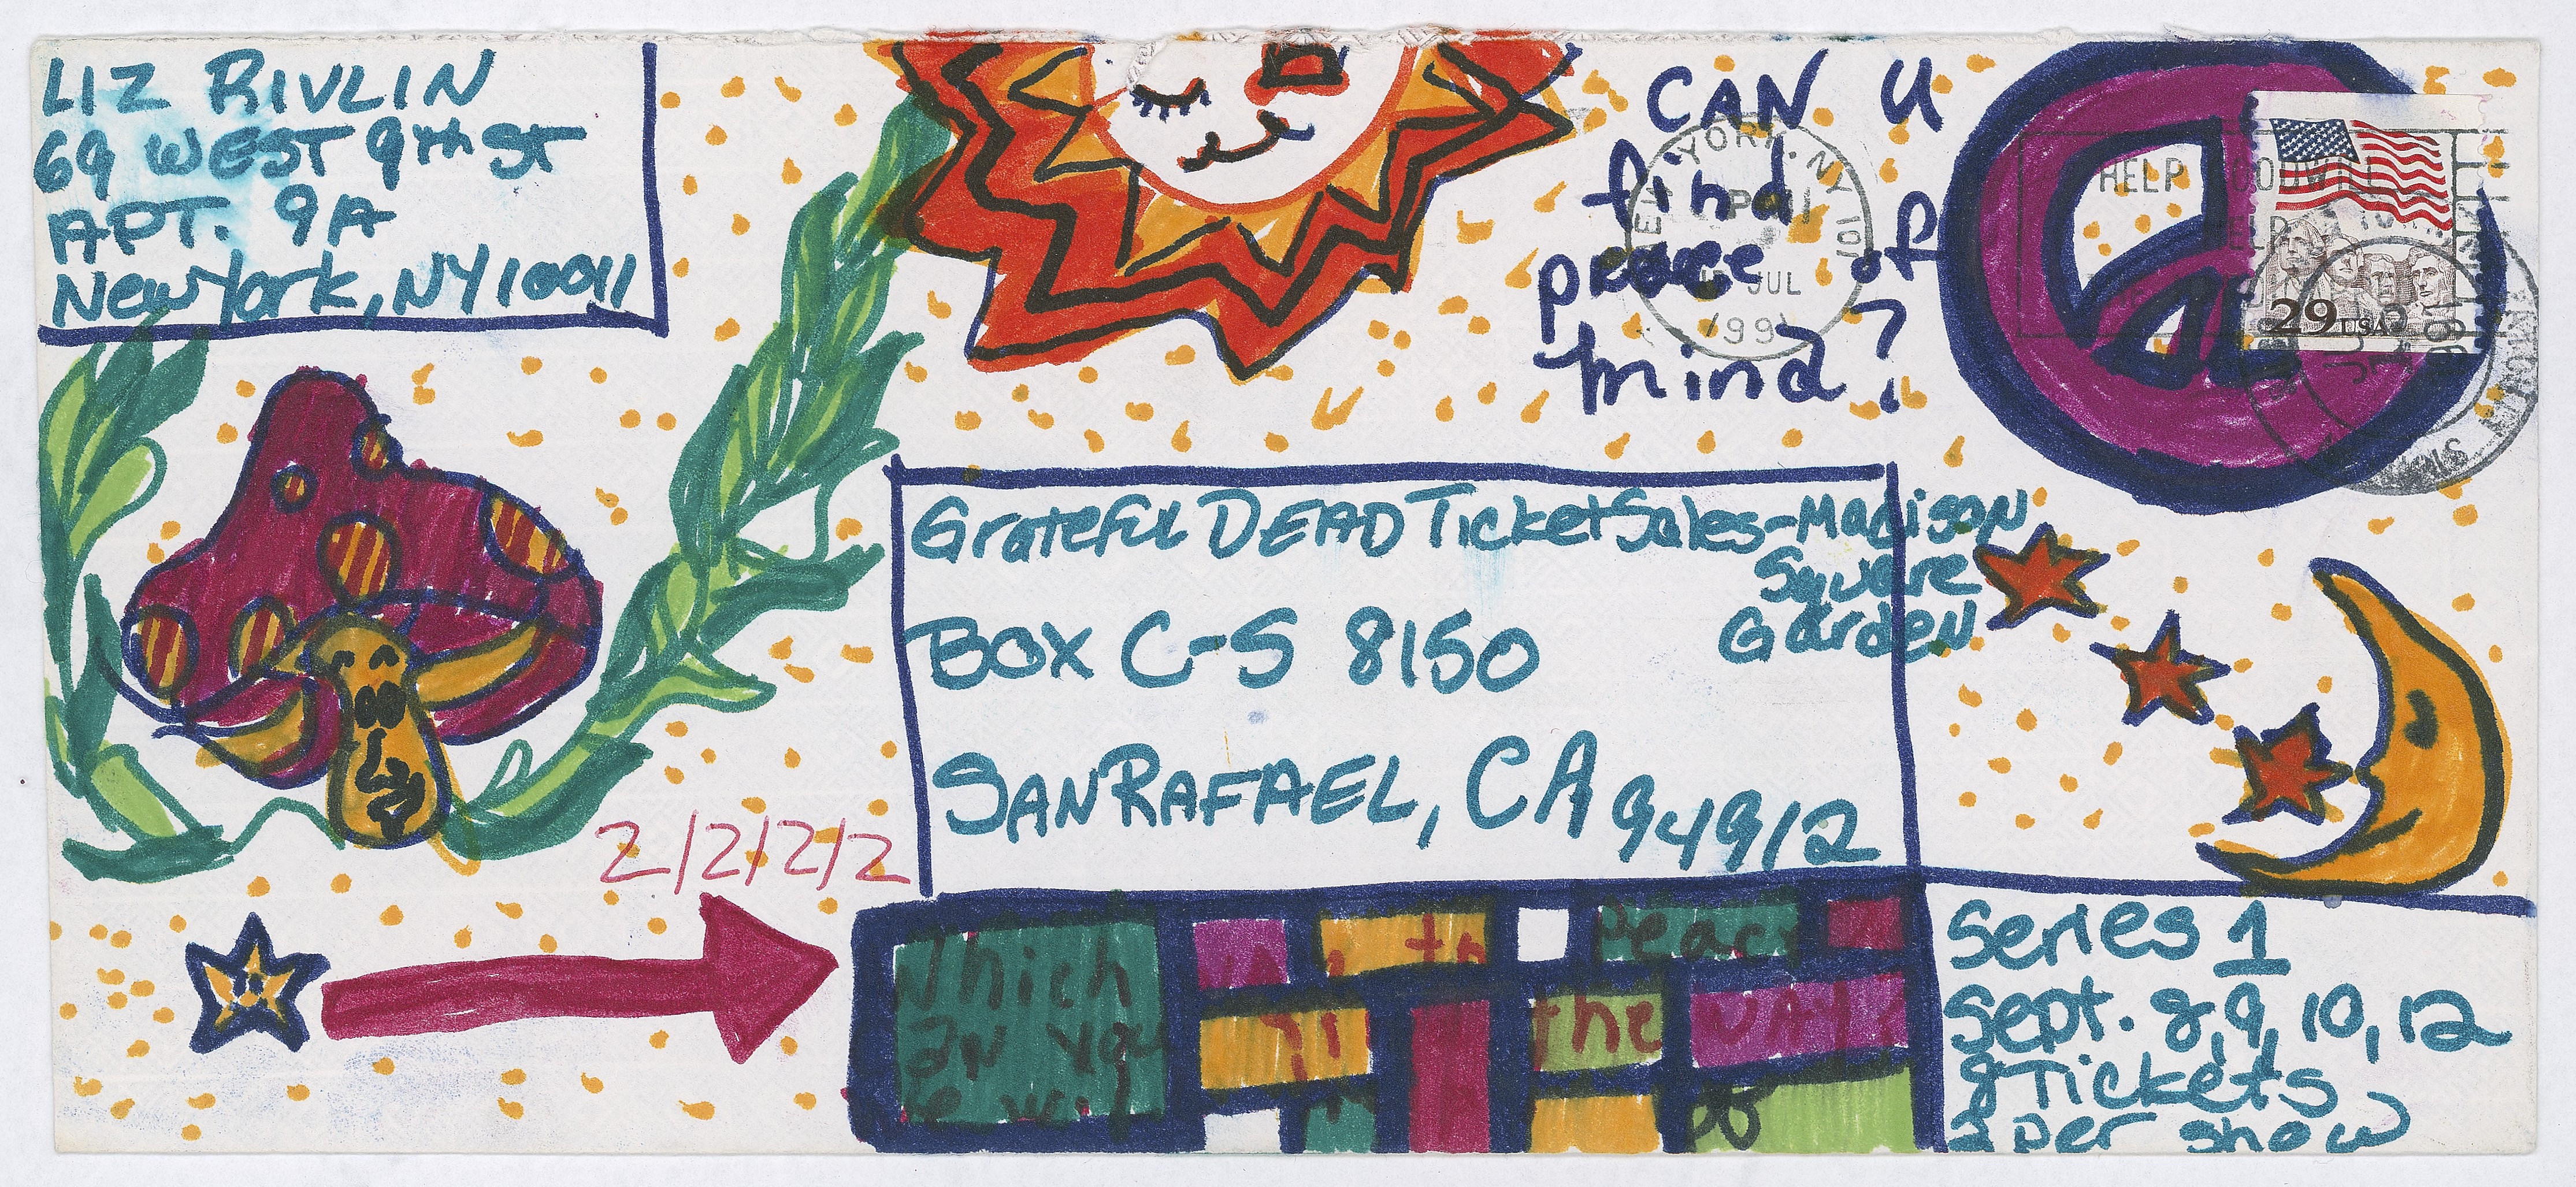 LIZ RIVLIN
69 WEST 9th St
APT. 9A
New York, NY 10011
CAN U
find
peace of
mind?
YORK, NY 101
JUL
199
HELP GOODWILL
HELP
29 USA
Grateful DEAD Ticket Sales - Madison
Square
Garden
BOX C-S 8150
SAN RAFAEL, CA 94912
2/2/2/2
Which
peace
the way
Series 1
Sept. 8, 9, 10, 12
8 Tickets
2 per show